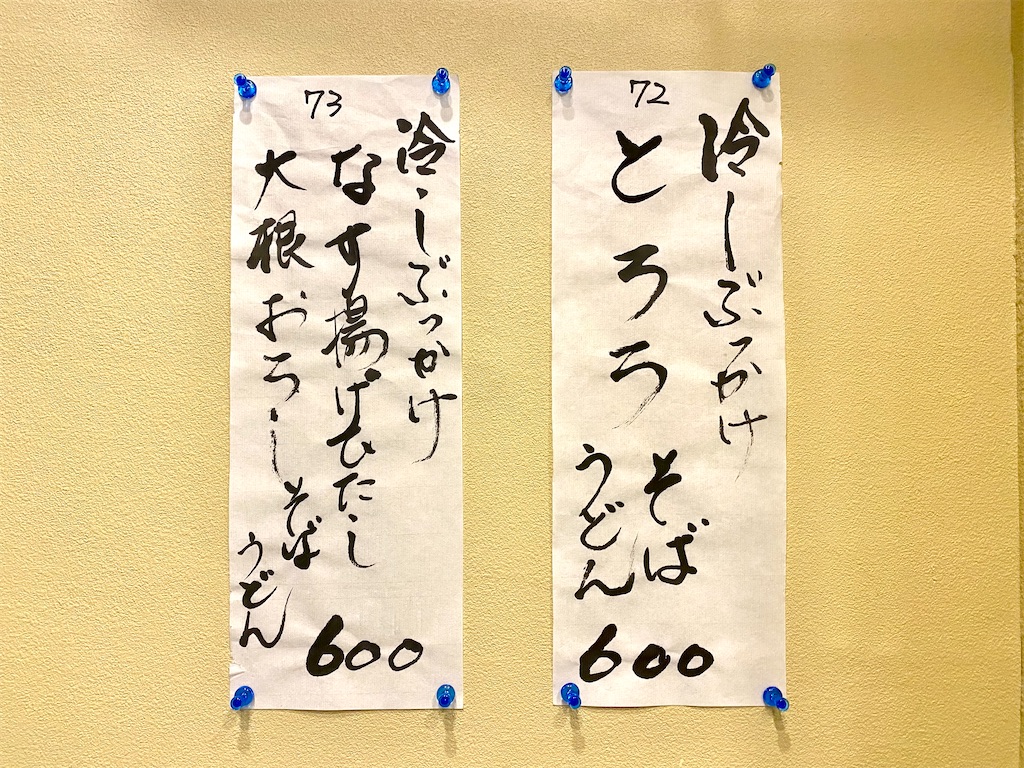 72
冷しぶっかけ
とろろ
そば
うどん
600
73
冷しぶっかけ
なす揚げひたし
大根おろし
そば
うどん
600